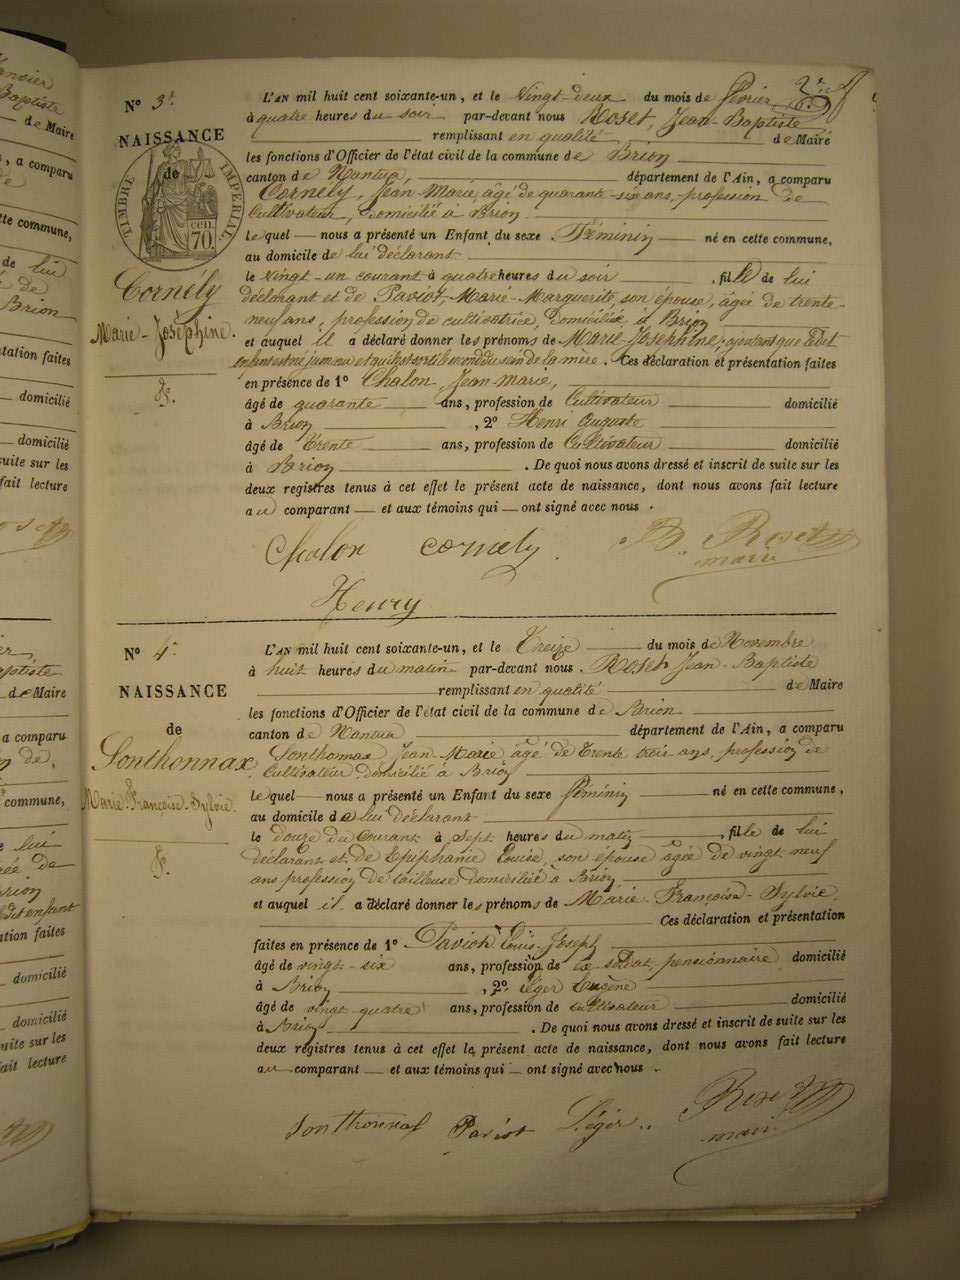 anvier
Baptiste
de Maire
, a comparu
de
tte commune,
de lui
de
Brion
tation faites
domicilié
domicilié
suite sur les
fait lecture
de Maire
a comparu
de.
commune,
lui
de
Brion
dit enfant
tation faites
domicilié
domicilié
uite sur les
ait lecture
N° 3.
NAISSANCE
de
TIMBRE IMPÉRIAL
70. cen.
Cornély
Marie-Joséphine.
L'AN mil huit cent soixante-un, et le Vingt-deux du mois de février
à quatre heures du soir par-devant nous Roset, Jean-Baptiste
remplissant en qualité de Maire
les fonctions d'Officier de l'état civil de la commune de Brion
canton de Nantua, département de l'Ain, a comparu
Cornely, Jean-Marie, âgé de quarante-six ans, profession de
Cultivateur, domicilié à Brion
lequel nous a présenté un Enfant du sexe Féminin né en cette commune,
au domicile de lui déclarant
le vingt-un courant à quatre heures du soir, fille de lui
déclarant et de Paviot, Marie-Marguerite, son épouse, âgée de trente-
neuf ans, profession de cultivatrice, domiciliée à Brion
et auquel il a déclaré donner les prénoms de Marie-Joséphine, ajoutant que ledit
enfant est né jumeau et qu'il est sorti le second du sein de la mère. Ces déclaration et présentation faites
en présence de 1° Chalon, Jean-Marie,
âgé de quarante ans, profession de Cultivateur domicilié
à Brion, 2° Henri Auguste
âgé de Trente ans, profession de Cultivateur domicilié
à Brion. De quoi nous avons dressé et inscrit de suite sur les
deux registres tenus à cet effet le présent acte de naissance, dont nous avons fait lecture
au comparant et aux témoins qui ont signé avec nous.
Chalon cornely B. Roset
maire
Henry
N° 4.
NAISSANCE
de
Sonthonnax,
Marie-Françoise-Sylvie.
L'AN mil huit cent soixante-un, et le Treize du mois de Novembre
à huit heures du matin par-devant nous Roset Jean-Baptiste
remplissant en qualité de Maire
les fonctions d'Officier de l'état civil de la commune de Brion
canton de Nantua département de l'Ain, a comparu
Sonthonnax, Jean-Marie âgé de Trente trois ans, profession de
Cultivateur domicilié à Brion
lequel nous a présenté un Enfant du sexe féminin né en cette commune,
au domicile de lui déclarant
le douze du Courant à Sept heures du matin, fille de lui
déclarant et de Epiphanie Louise, son épouse âgée de vingt neuf
ans profession de tailleuse domiciliée à Brion,
et auquel il a déclaré donner les prénoms de Marie-Françoise-Sylvie.
Ces déclaration et présentation
faites en présence de 1° Paviot Louis-Joseph
âgé de vingt-six ans, profession de ex-soldat pensionnaire domicilié
à Brion, 2° Léger Eugène
âgé de vingt-quatre ans, profession de cultivateur domicilié
à Brion. De quoi nous avons dressé et inscrit de suite sur les
deux registres tenus à cet effet le présent acte de naissance, dont nous avons fait lecture
au comparant et aux témoins qui ont signé avec nous.
Sonthonnax Paviot Léger Roset
maire